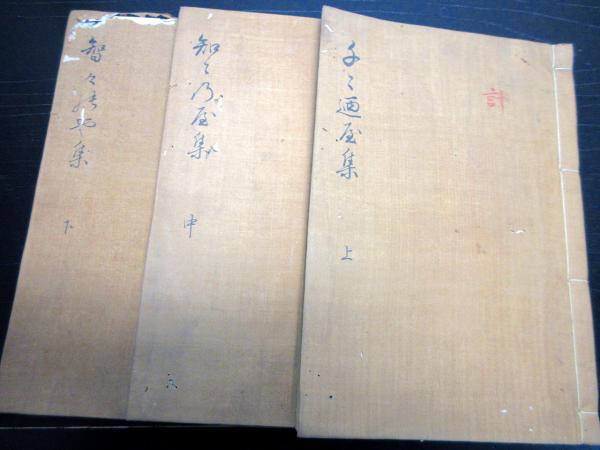 千ゝ廼屋集
上
計
知ゝ乃屋集
中
智々能や集
下